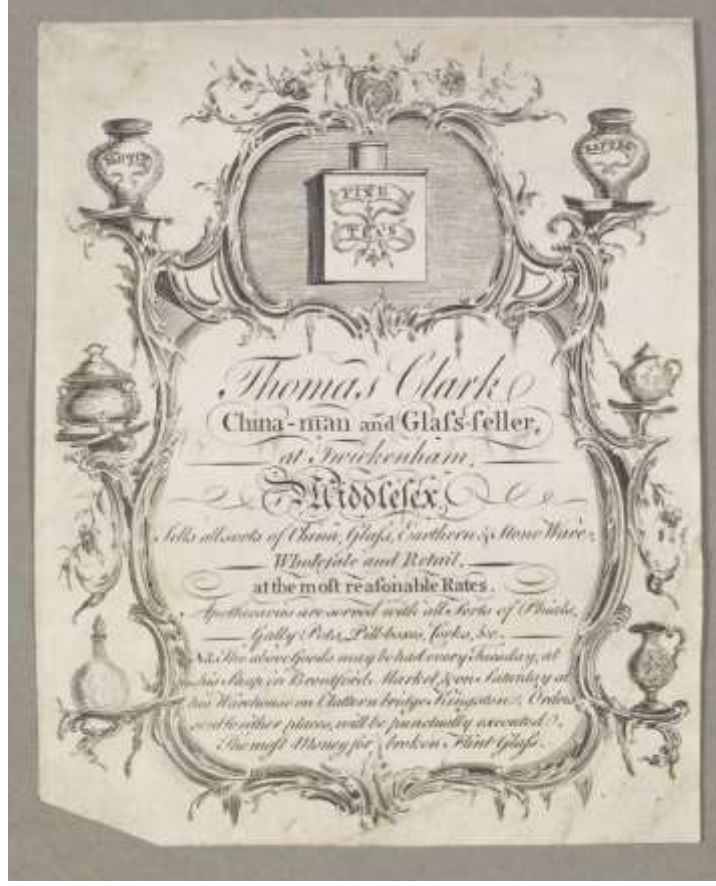 FINE
TEAS
Thomas Clark
China-man and Glaſs-ſeller,
at Twickenham,
Middleſex,
Sells all sorts of China, Glaſs, Earthern & Stone Ware,
Wholeſale and Retail,
at the moſt reaſonable Rates.
Apothecaries are served with all Sorts of Phials,
Gally Pots, Pill-boxes, Corks, &c.
N.B. The above Goods may be had every Tuesday, at
his Shop in Brentford Market, & on Saturday at
his Warehouse on Clattern bridge Kingston, Orders
sent to either places, will be punctually executed.
The moſt Money for broken Flint Glaſs.